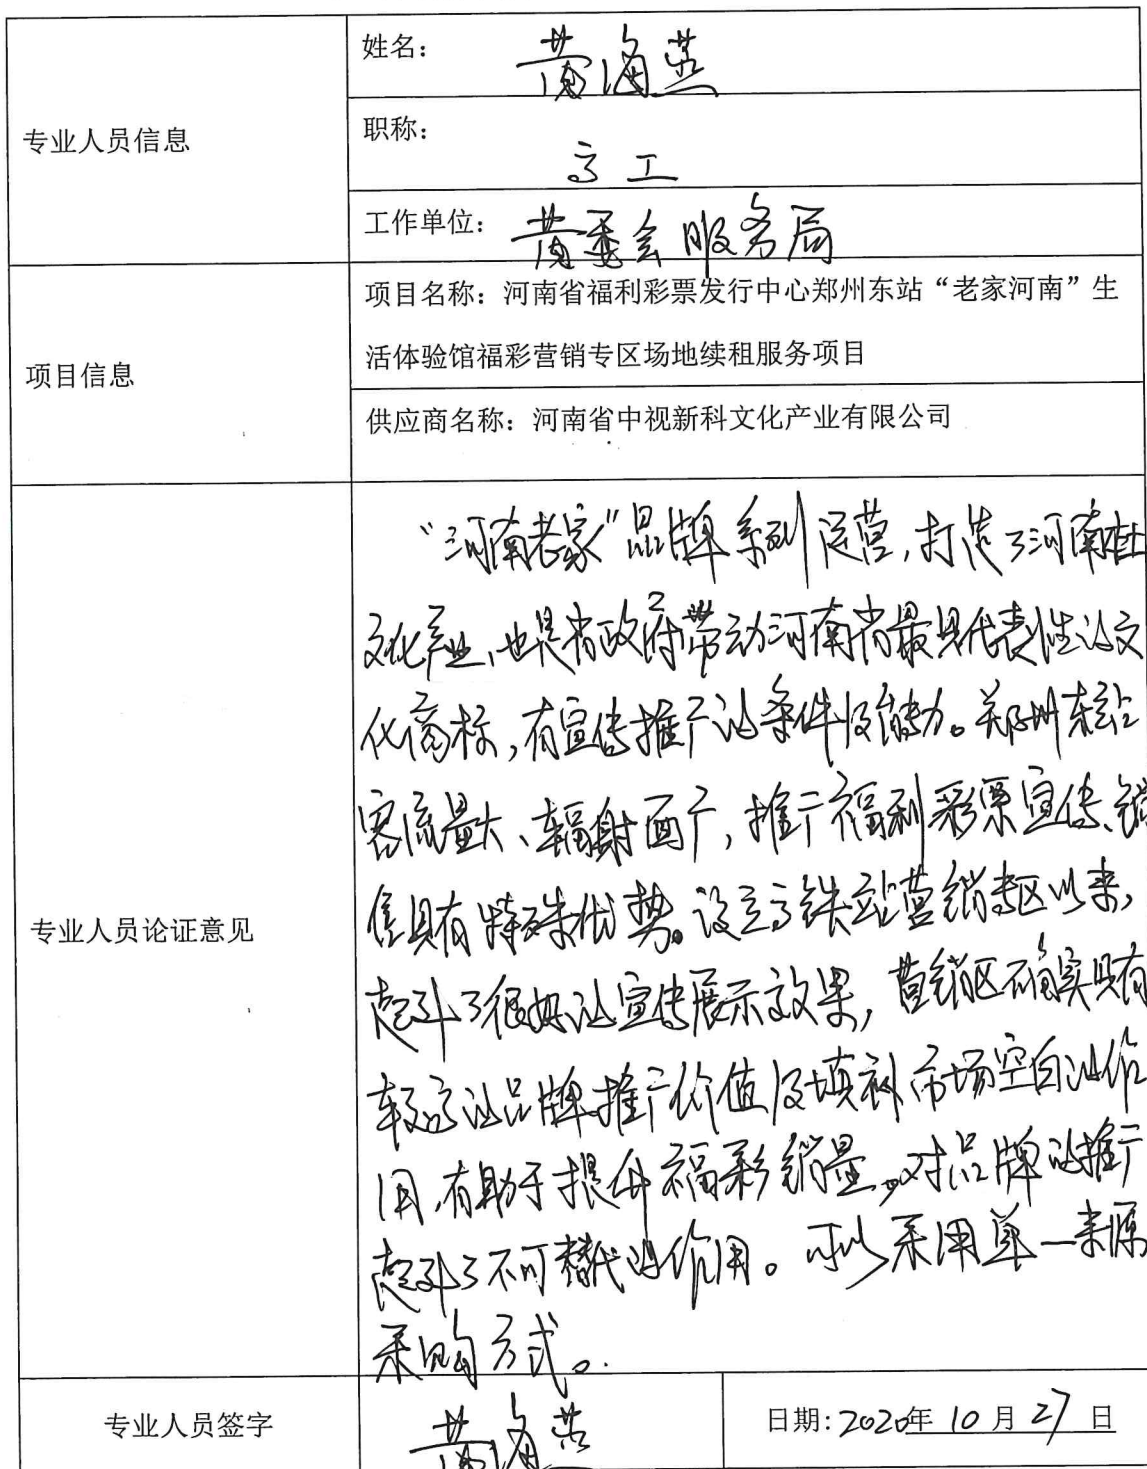 姓名：黄海燕
专业人员信息
职称：高工
工作单位：黄委会服务局
项目信息
项目名称：河南省福利彩票发行中心郑州东站“老家河南”生
活体验馆福彩营销专区场地续租服务项目
供应商名称：河南省中视新科文化产业有限公司
专业人员论证意见
“河南老家”品牌系列运营，打造了河南
文化产业、也是省政府带动河南省最具代表性的文
化商标，有宣传推广的条件及能力。郑州东站
客流量大、辐射面广，推广福利彩票宣传、销
售具有特殊优势。设立高铁站营销专区以来，
起到了很好的宣传展示效果，营销区确实具有
较高的品牌推广价值及填补市场空白的作
用，有助于提升福彩销量。对品牌的推广
起到了不可替代的作用。可以采用单一来源
采购方式。
专业人员签字
黄海燕
日期：2020年10月27日